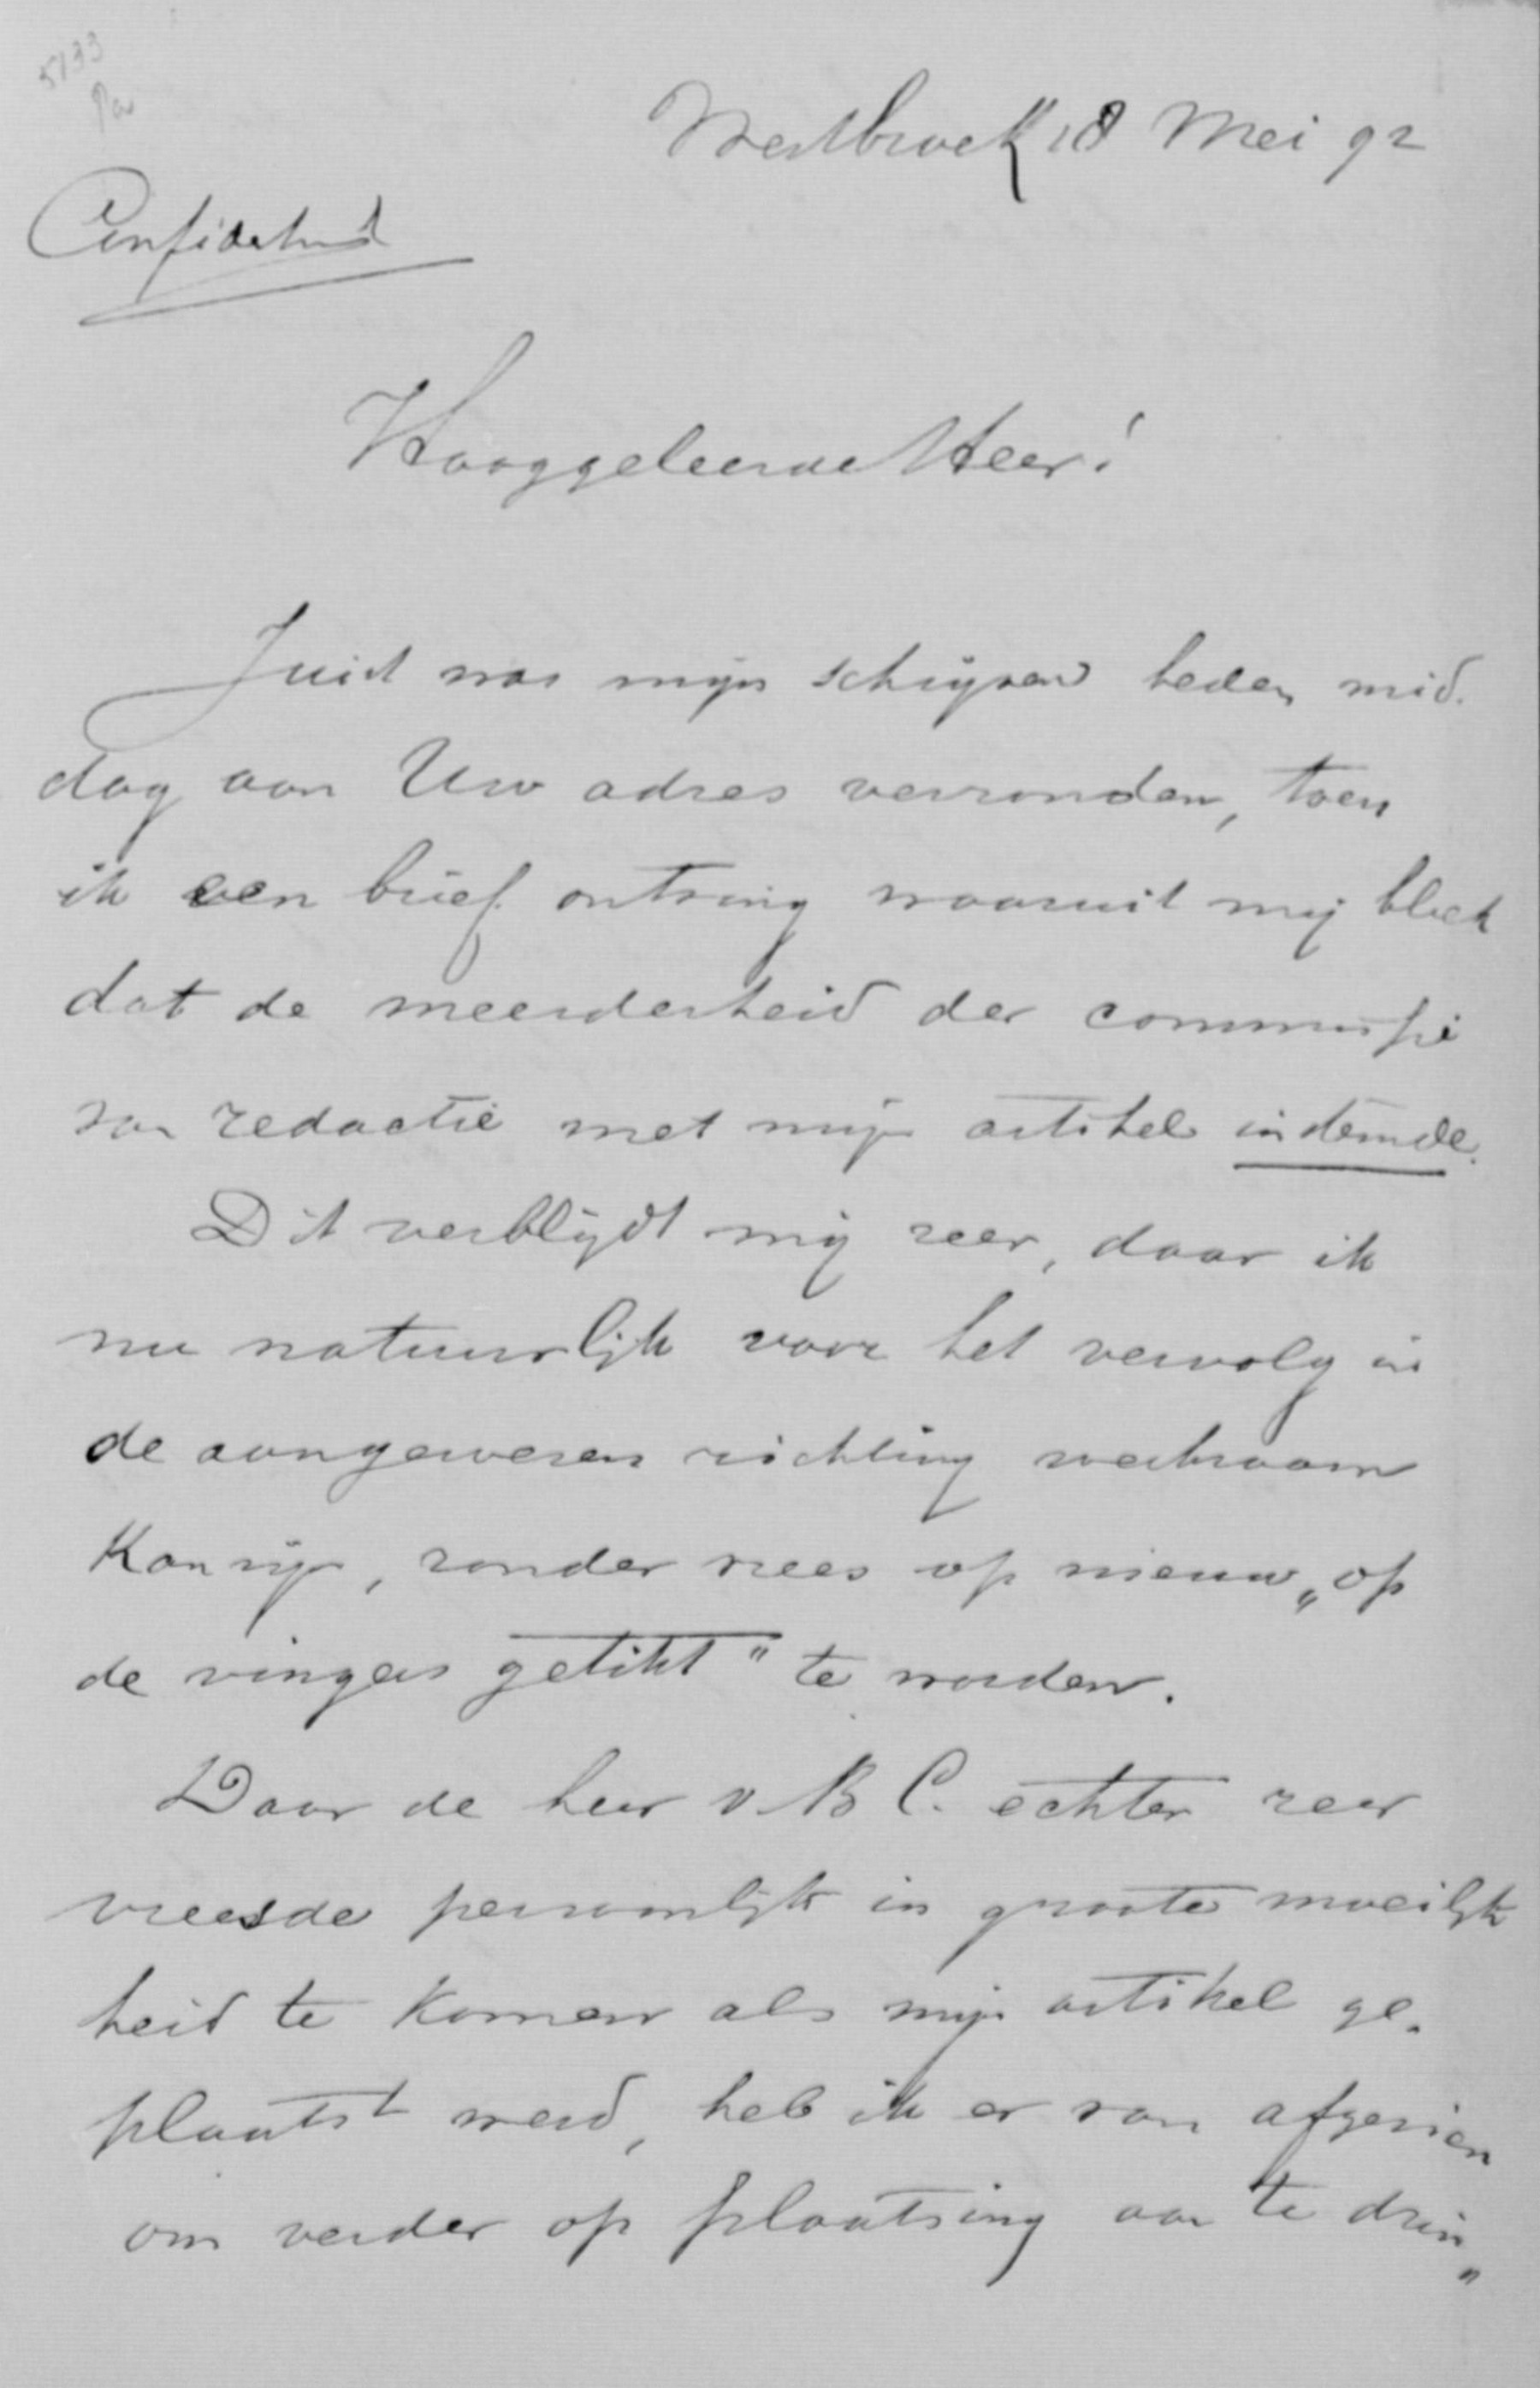 5133
Westbroek 18 Mei 92
Confidentieel
Hooggeleerde Heer!
Juist was mijn schrijven heden mid-
dag aan Uw adres verzonden, toen
ik een brief ontving waaruit mij bleek
dat de meerderheid der commissie
van redactie met mijn artikel instemde.
Dit verblijdt mij zeer, daar ik
nu natuurlijk voor het vervolg in
de aangewezen richting werkzaam
kan zijn, zonder vrees op nieuw „op
de vingers getikt" te worden.
Daar de heer v. B C. echter zeer
vreesde persoonlijk in groote moeilijk
heid te komen als mijn artikel ge-
plaatst werd, heb ik er van afgezien
om verder op plaatsing aan te drin„